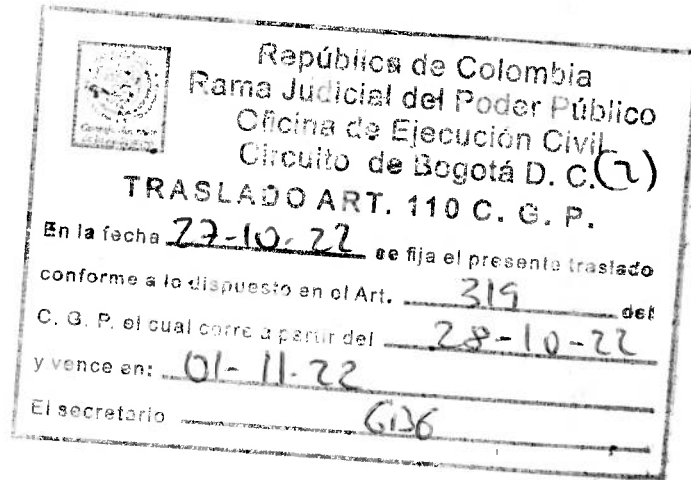 República de Colombia
Rama Judicial del Poder Público
Oficina de Ejecución Civil
Circuito de Bogotá D. C. (2)
TRASLADO ART. 110 C. G. P.
En la fecha 27-10-22 se fija el presente traslado
conforme a lo dispuesto en el Art. 319 del
C. G. P. el cual corre a partir del 28-10-22
y vence en: 01-11-22
El secretario